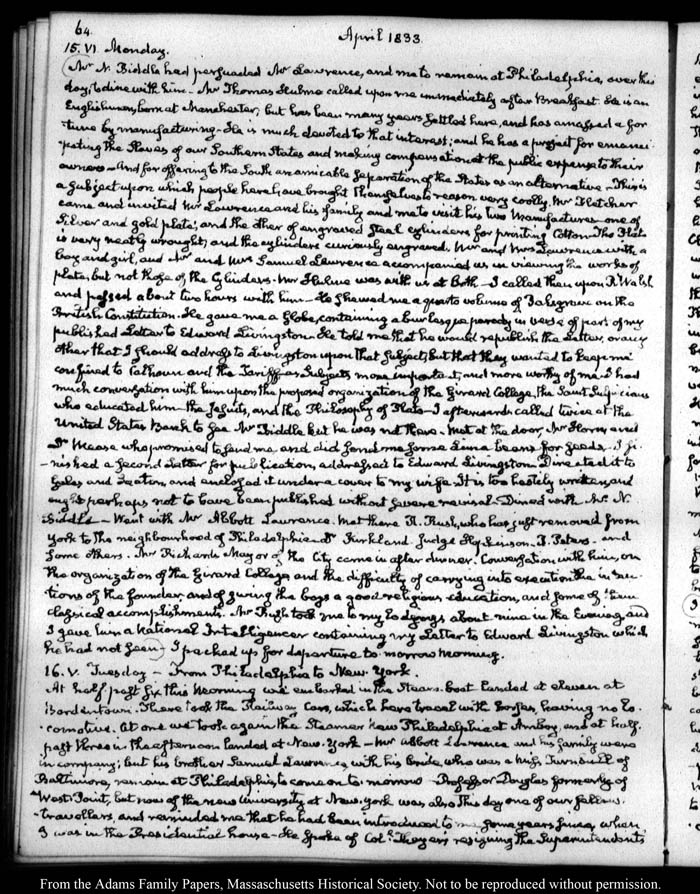 64.
April 1833.
15. VI. Monday.
Mr. N. Biddle had persuaded Mr Lawrence, and me to remain at Philadelphia, over this
day, to dine with him. Mr Thomas Hulme called upon me immediately after Breakfast. He is an
Englishman, born at Manchester; but has been many years settled here, and has amassed a for
tune by manufacturing. He is much devoted to that interest; and he has a project for emanci
pating the Slaves of our Southern States and making compensation at the public expense to their
owners. And for offering to the South an amicable separation of the States as an alternative. This is
a subject upon which people here have brought themselves to reason very coolly. Mr Fletcher
came and invited Mr Lawrence and his family and me to visit his two Manufactures one of
Silver and gold plate, and the other of engraved steel cylinders for printing Cotton. The Plate
is very neatly wrought, and the cylinders curiously engraved. Mr and Mrs Lawrence with a
boy and girl, and Mr and Mrs Samuel Lawrence accompanied us in viewing the works of
plate, but not those of the Cylinders. Mr Hulme was with us at Both. I called then upon R. Walsh
and passed about two hours with him. He shewed me a quarto volume of Palgrave on the
British Constitution. He gave me a Globe, containing a burlesque parody in verse of part of my
published Letter to Edward Livingston. He told me that he would republish the Letter, or any
other that I should address to Livingston upon that subject, but that they wanted to keep me
confined to Calhoun and the Tariff as subjects more important, and more worthy of me. I had
much conversation with him upon the proposed organization of the Girard College, the Saint Sulpicians
who educated him the Jesuits, and the Philosophy of Plato. I afterwards called twice at the
United States Bank to see Mr Biddle but he was not there. Met at the door, Mr and
Dr Mease who promised to send me, and did send me some Lima beans for seeds. I fi
-nished a second Letter for publication, addressed to Edward Livingston. Directed it to
Gales and Seaton, and enclosed it under a cover to my wife. It is too hastily written, and
ought perhaps not to have been published without severe revisal. Dined with Mr. N.
Biddle. Went with Mr Abbott Lawrence. Met there R. Rush, who has just removed from
York to the neighbourhood of Philadelphia. Dr Kirkland. Judge Hopkinson. Peters. and
some others. Mr Richards Mayor of the City came in after dinner. Conversation with him, on
the organization of the Girard College, and the difficulty of carrying into execution the inten
tions of the founder, and of giving the boys a good religious education, and some of them
classical accomplishments. Mr Rush took me to my lodgings about nine in the Evening, and
I gave him a National Intelligencer containing my Letter to Edward Livingston which
he had not seen. I packed up for departure to-morrow morning.
16. V. Tuesday — From Philadelphia to New York.
At half past six this morning we embarked in the Steam-Boat landed at eleven at
Bordentown. There took the Railway Cars, which here travel with horses, having no lo
comotive. At one we took again the Steamer New Philadelphia at Amboy, and at half
past three in the afternoon landed at New-York. Mr Abbott Lawrence and his family were
in company; but his brother Samuel Lawrence, with his bride, who was a Miss Turnbull of
Baltimore, remain at Philadelphia, to come on to-morrow. Professor Douglas formerly of
West-Point, but now of the new University at New-York was also this day one of our fellow-
travellers, and reminded me that he had been introduced to me some years since, when
I was in the Presidential house. He spoke of Coll. Thayer's resigning the Superintendents
From the Adams Family Papers, Massachusetts Historical Society. Not to be reproduced without permission.